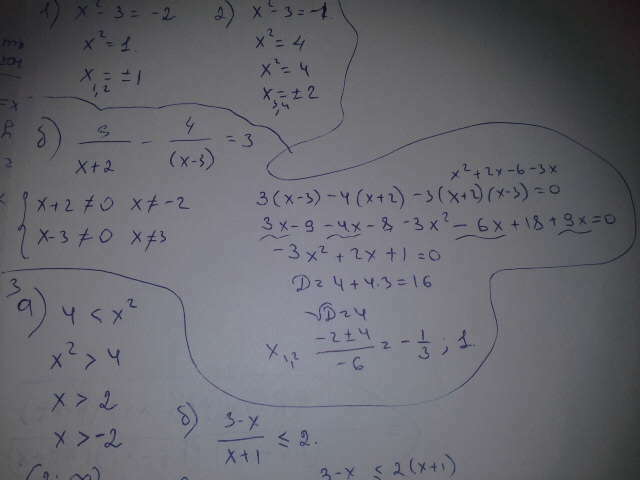 1) x² - 3 = -2
x² = 1.
x₁,₂ = ±1
2) x² - 3 = -1.
x² = 4
x² = 4
x₃,₄ = ±2
б) 3/(x+2) - 4/(x-3) = 3
{ x+2 ≠ 0 x ≠ -2
x-3 ≠ 0 x ≠ 3
x² + 2x - 6 - 3x
3(x-3) - 4(x+2) - 3(x+2)(x-3) = 0
3x - 9 - 4x - 8 - 3x² - 6x + 18 + 9x = 0
-3x² + 2x + 1 = 0
D = 4 + 4·3 = 16
√D = 4
x₁,₂ (-2±4)/-6 = -1/3 ; 1.
3
а) 4 < x²
x² > 4
x > 2
x > -2
б) (3-x)/(x+1) ≤ 2.
3-x ≤ 2(x+1)